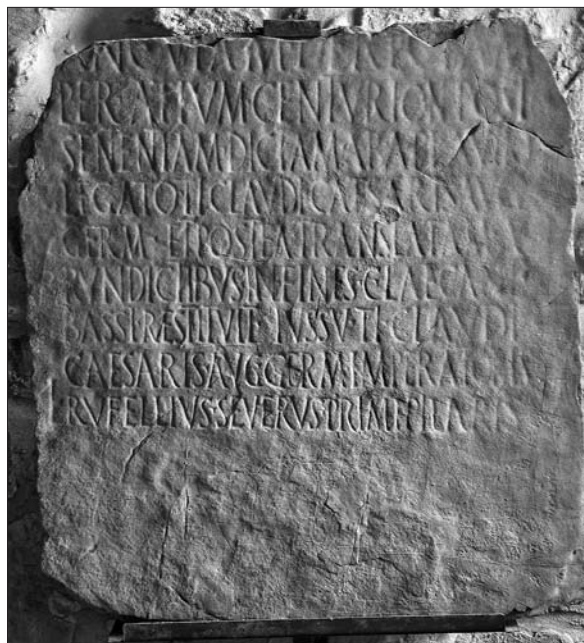 HANC VIAM DERECTAM
PER ATIVM CENTVRION POST
SENTENTIAM DICTAM AB A PLAVTIO
LEGATO TI CLAVDI CAESARIS AVG
GERM ET POSTEA TRANSLATAM A
RVNDICTIBVS IN FINES C LAECANI
BASSI RESTITVIT IVSSV TI CLAVDI
CAESARIS AVG GERM IMPERATORIS
L RVFELLIVS SEVERVS PRIMIPILARIS